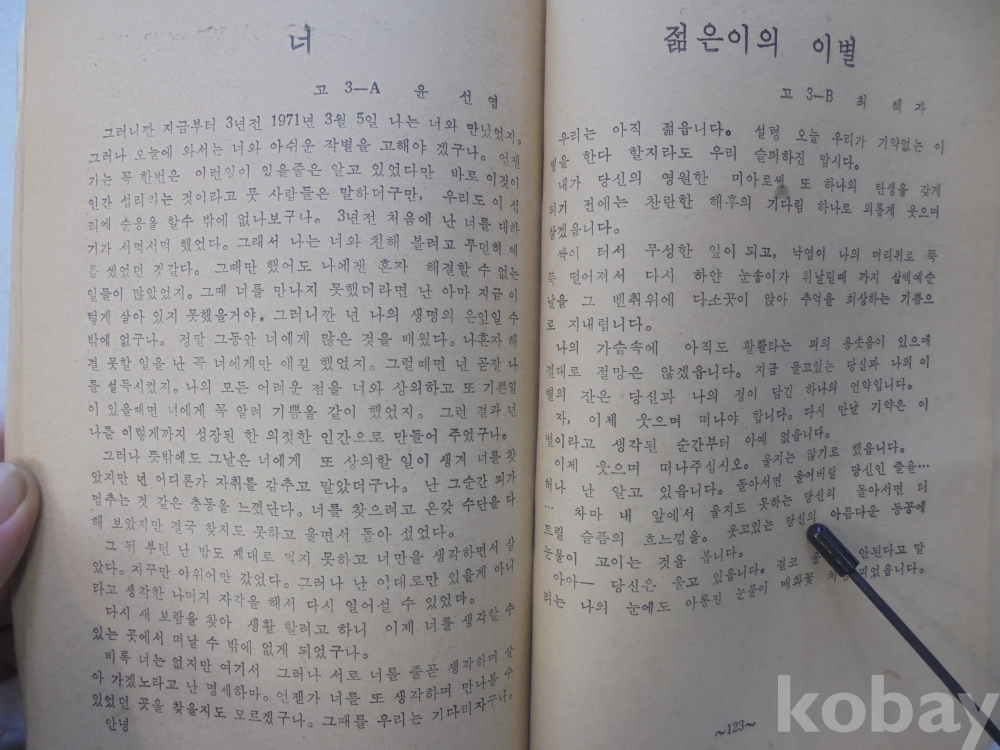 너
고 3—A 윤 선 엽
그러니깐 지금부터 3년전 1971년 3월 5일 나는 너와 만났었지.
그러나 오늘에 와서는 너와 아쉬운 작별을 고해야 겠구나. 언젠
가는 꼭 한번은 이런일이 있을줄은 알고 있었다만 바로 이것이
인간 섭리라는 것이라고 뭇 사람들은 말하더구만, 우리도 이 섭
리에 순응을 할수 밖에 없나보구나. 3년전 처음에 난 너를 대하
기가 서먹서먹 했었다. 그래서 나는 너와 친해 볼려고 무던히 애
를 썼었던 것같다. 그때만 했어도 나에겐 혼자 해결할 수 없는
일들이 많았었지. 그때 너를 만나지 못했더라면 난 아마 지금 이
렇게 살아 있지 못했을거야. 그러니깐 넌 나의 생명의 은인일 수
밖에 없구나. 정말 그동안 너에게 많은 것을 배웠다. 나혼자 해
결 못할 일을 난 꼭 너에게만 얘길 했었지. 그럴때면 넌 곧잘 나
를 설득시켰지. 나의 모든 어려운 점을 너와 상의하고 또 기쁜일
이 있을때면 너에게 꼭 알려 기쁨을 같이 했었지. 그런 결과 넌
나를 이렇게까지 성장된 한 의젓한 인간으로 만들어 주었구나.
그러나 뜻밖에도 그날은 너에게 또 상의할 일이 생겨 너를 찾
았지만 넌 어디론가 자취를 감추고 말았더구나. 난 그순간 피가
멈추는 것 같은 충동을 느꼈단다. 너를 찾으려고 온갖 수단을 다
해 보았지만 결국 찾지도 못하고 울면서 돌아 섰었다.
그 뒤 부턴 난 밥도 제대로 먹지 못하고 너만을 생각하면서 살
았다. 자꾸만 야위어만 갔었다. 그러나 난 이대로만 있을게 아니
라고 생각한 나머지 자각을 해서 다시 일어설 수 있었다.
다시 새 보람을 찾아 생활 할려고 하니 이제 너를 생각할 수
있는 곳에서 떠날 수 밖에 없게 되었구나.
비록 너는 없지만 여기서 그러나 서로 너를 줄곧 생각하며 살
아 가겠노라고 난 맹세하마. 언젠가 너를 또 생각하며 만나볼 수
있었던 곳을 찾을지도 모르겠구나. 그때를 우리는 기다리자꾸나.
안녕
젊은이의 이별
고 3—B 최 혜 자
우리는 아직 젊읍니다. 설령 오늘 우리가 기약없는 이
별을 한다 할지라도 우리 슬퍼하진 맙시다.
내가 당신의 영원한 미아로써 또 하나의 탄생을 갖게
되기 전에는 찬란한 해후의 기다림 하나로 외롭게 웃으며
살겠읍니다.
싹이 터서 무성한 잎이 되고, 낙엽이 나의 머리위로 뚝
뚝 떨어져서 다시 하얀 눈송이가 휘날릴때 까지 삼백예순
날을 그 벤취위에 다소곳이 앉아 추억을 회상하는 기쁨으
로 지내렵니다.
나의 가슴속에 아직도 활활타는 피의 용솟음이 있으매
절대로 절망은 않겠읍니다. 지금 들고있는 당신과 나의 이
별의 잔은 당신과 나의 정이 담긴 하나의 언약입니다.
자, 이제 웃으며 떠나야 합니다. 다시 만날 기약은 이
별이라고 생각된 순간부터 아예 없읍니다.
이제 웃으며 떠나주십시오. 울지는 않기로 했읍니다.
허나 난 알고 있읍니다. 돌아서면 울어버릴 당신인 줄을…
… 차마 내 앞에서 울지도 못하는 당신의 돌아서면 터
트릴 슬픔의 흐느낌을. 웃고있는 당신의 아름다운 동공에
눈물이 고이는 것을 봅니다.
아아— 당신은 울고 있읍니다. 결코 안된다고 말
리는 나의 눈에도 아롱진 눈물이 매화꽃 피었읍니다.
~123~
kobay